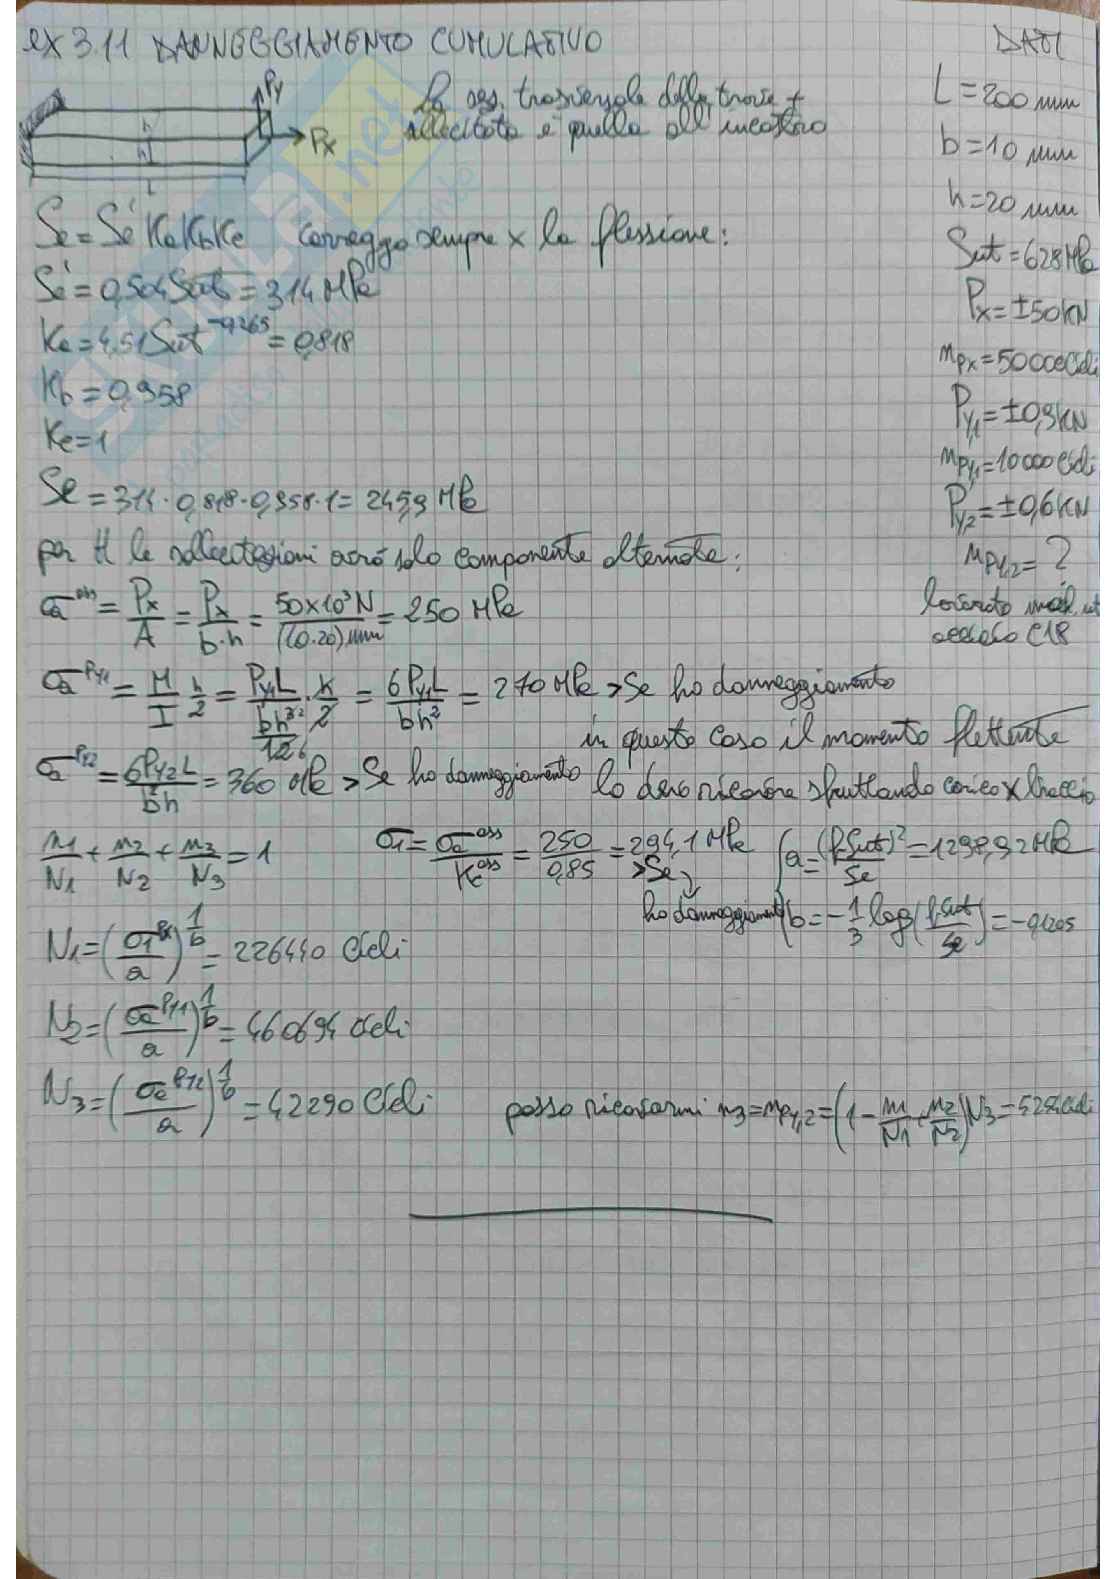 ex 3.11 DANNEGGIAMENTO CUMULATIVO
DATI
Py
Px
h
b
L
la sez. trasversale della trave +
sollecitata è quella all'incastro
L=200 mm
b=10 mm
h=20 mm
Sut=628MPa
Px=±50kN
nPx=50000Cicli
Py,1=±0,9kN
nPy,1=10000 Cicli
Py,2=±0,6kN
nPy,2=?
acciaio C18
Se=Sé Ka Kb Kc correggo sempre x la flessione:
Sé=0,504Sut=314 MPa
Ka=4,51Sut^-0,265=0,818
Kb=0,958
Kc=1
Se=314·0,818·0,958·1=245,9 MPa
per tt le sollecitazioni avrò solo componente alternata:
σa^ass=Px/A=Px/b·h=50×10³N/(10·20)mm=250 MPa
σa^Py1=M/I h/2=Py1L/(bh³/12)·h/2=6Py1L/bh²=270 MPa >Se ho danneggiamento
in questo caso il momento flettente
σa^Py2=6Py2L/b²h=360 MPa >Se ho danneggiamento lo devo ricavare sfruttando carico x braccio
n1/N1+n2/N2+n3/N3=1 σ1=σa^ass/Kc^ass=250/0,85=294,1 MPa >Se ho danneggiamento
a=(f.Sut)²/Se=1298,92MPa
b=-1/3 log(f.Sut/Se)=-0,1205
N1=(σ1^Px/a)^1/b=226440 Cicli
N2=(σa^Py1/a)^1/b=460694 Cicli
N3=(σa^Py2/a)^1/b=42290 Cicli posso ricavarmi n3=nPy,2=(1-n1/N1+n2/N2)N3=5294Cicli